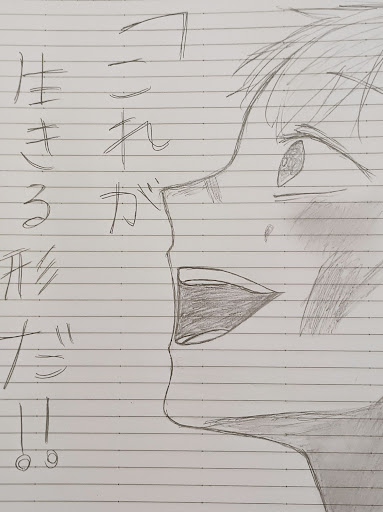 「これが
生きる形だ!!